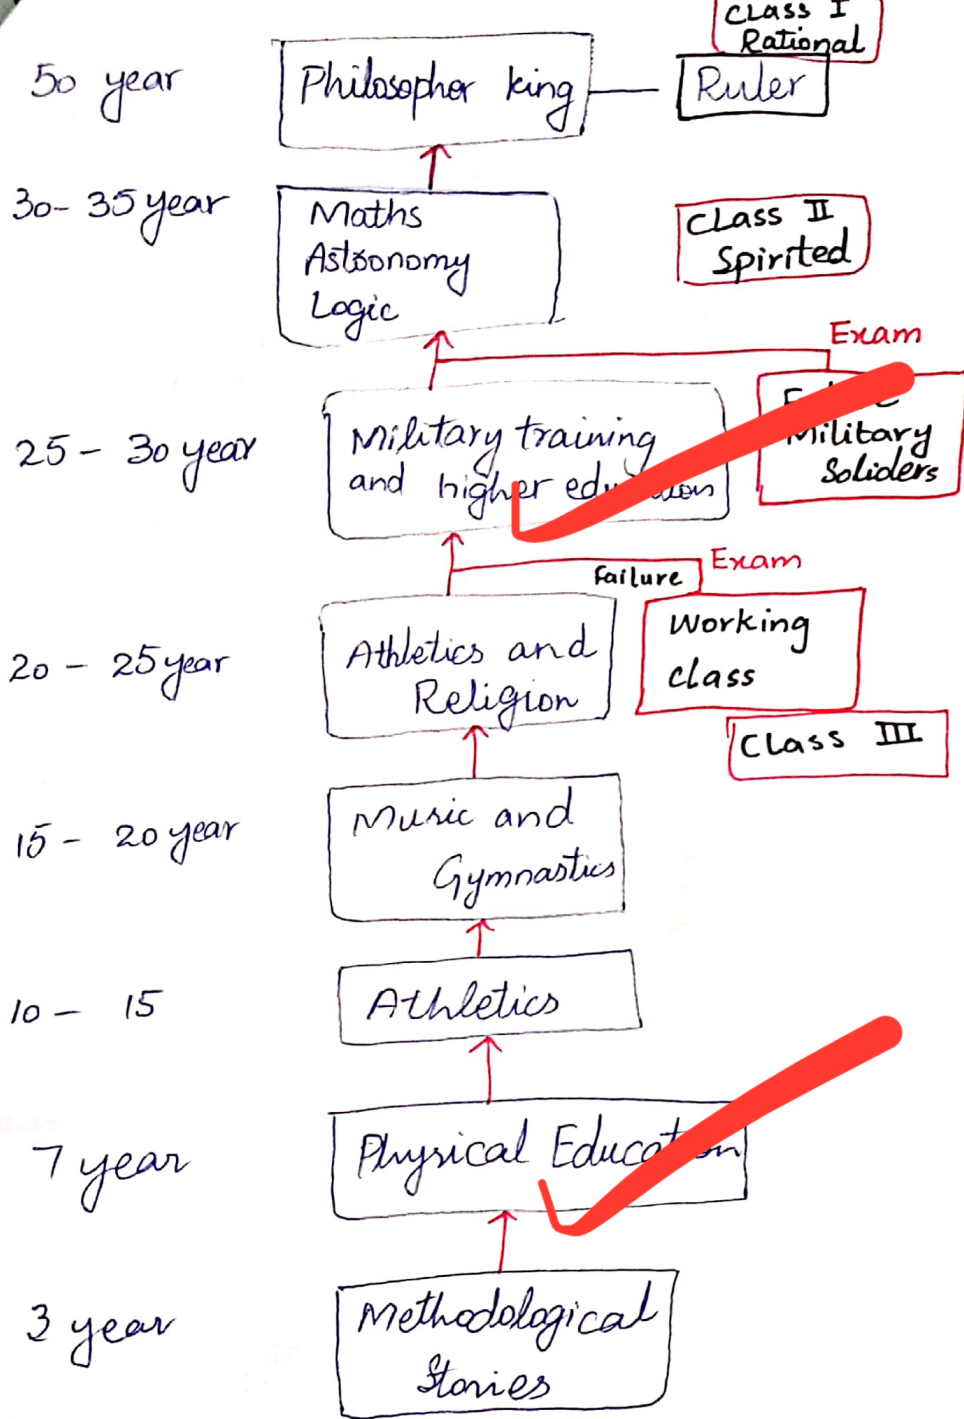 Class I
Rational
50 year
Philosopher king
Ruler
30- 35 year
Maths
Astronomy
Logic
Class II
Spirited
Exam
25 - 30 year
Military training
and higher education
Military
Soliders
Exam
Failure
20 - 25 year
Athletics and
Religion
Working
class
Class III
15 - 20 year
Music and
Gymnastics
10 - 15
Athletics
7 year
Physical Education
3 year
Methodological
Stories